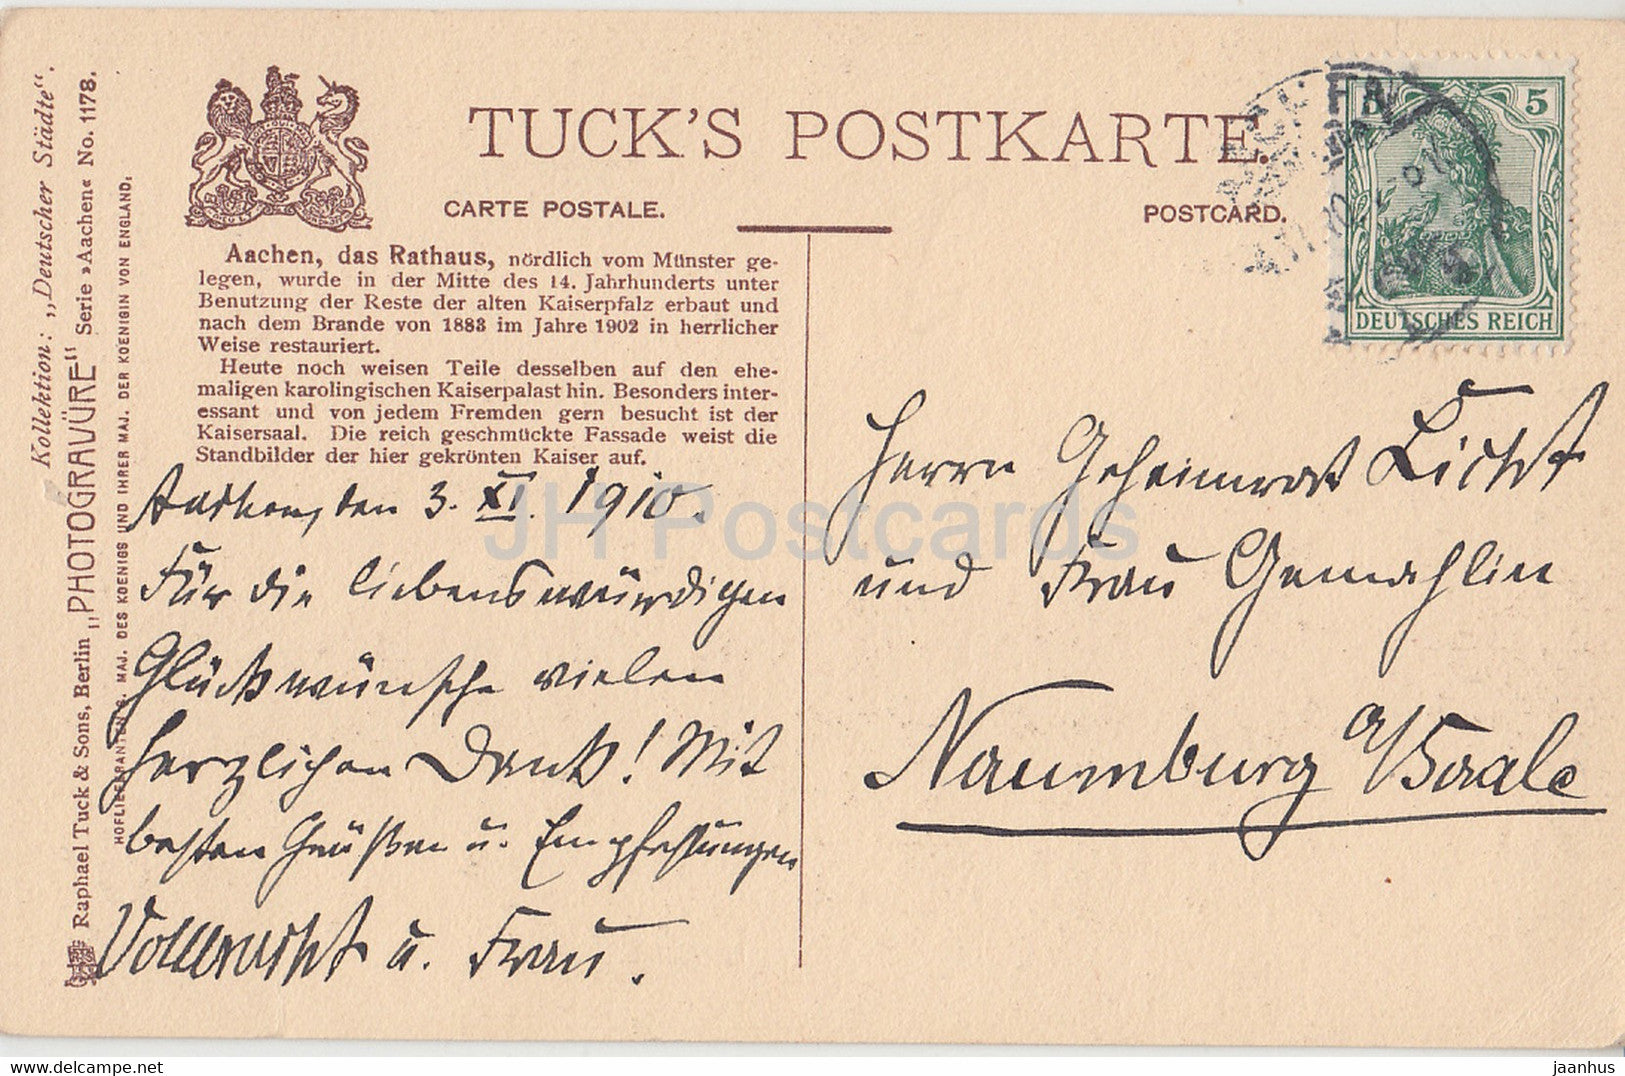 Kollektion: „Deutscher Städte“.
Raphael Tuck & Sons, Berlin „PHOTOGRAVÜRE“ Serie »Aachen« No. 1178.
HOFLIEFERANTEN S. MAJ. DES KOENIGS UND IHRER MAJ. DER KOENIGIN VON ENGLAND.
TUCK'S POSTKARTE.
CARTE POSTALE.
POSTCARD.
5
DEUTSCHES REICH
Aachen, das Rathaus, nördlich vom Münster ge-
legen, wurde in der Mitte des 14. Jahrhunderts unter
Benutzung der Reste der alten Kaiserpfalz erbaut und
nach dem Brande von 1883 im Jahre 1902 in herrlicher
Weise restauriert.
Heute noch weisen Teile desselben auf den ehe-
maligen karolingischen Kaiserpalast hin. Besonders inter-
essant und von jedem Fremden gern besucht ist der
Kaisersaal. Die reich geschmückte Fassade weist die
Standbilder der hier gekrönten Kaiser auf.
den 3. XI. 1910.
Für die liebenswürdigen
Glückwünsche vielen
herzlichen Dank! Mit
besten Grüßen u. Empfehlungen
Vollbracht u. Frau.
Herrn Geheimrat Licht
und Frau Gemahlin
Naumburg a/Saale
JH Postcards
delcampe.net
jaanhus